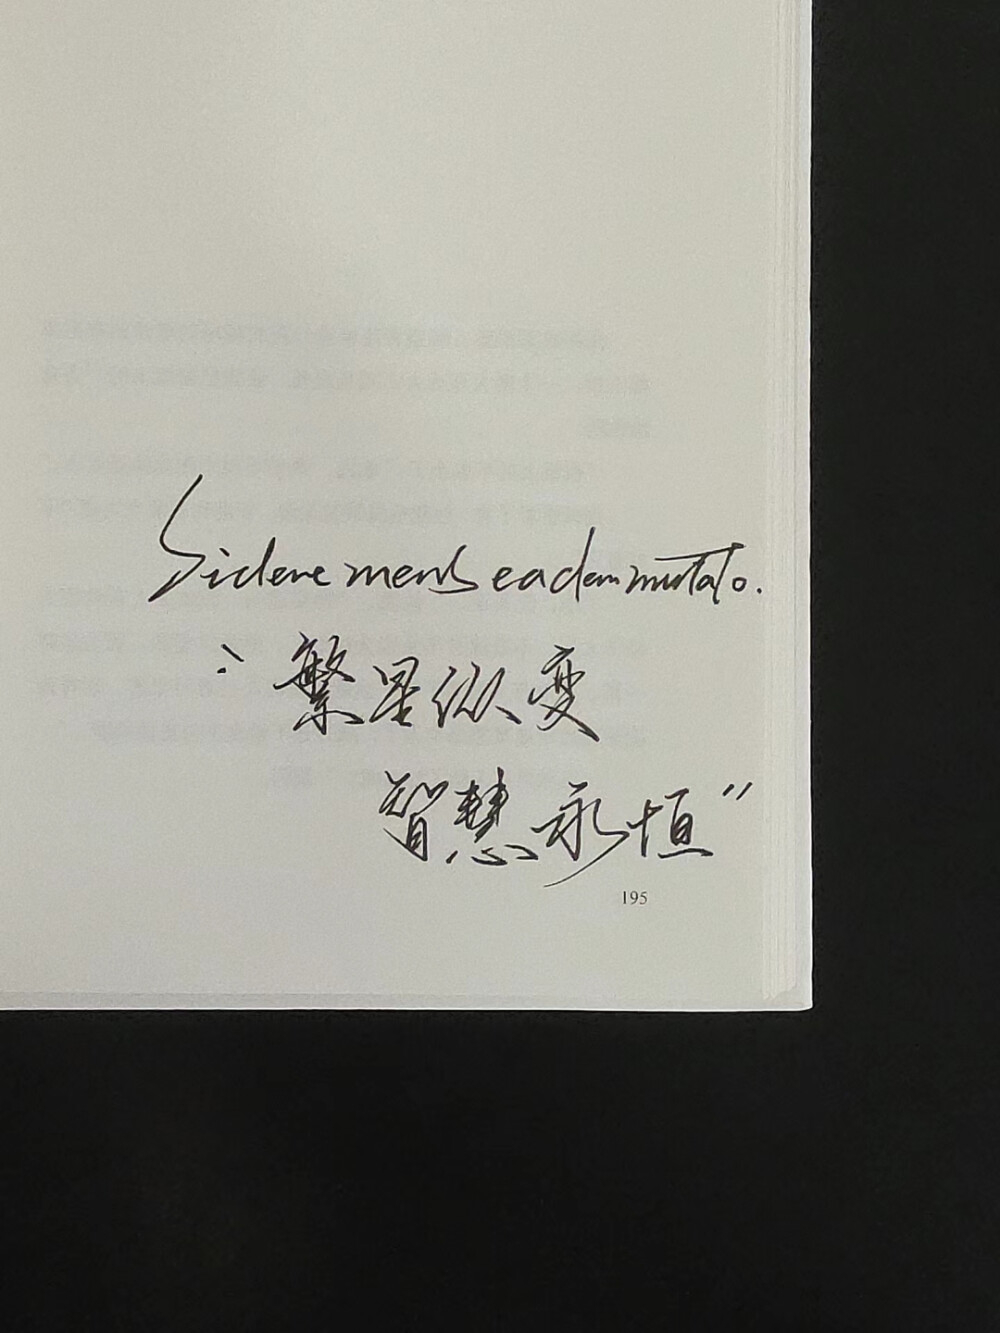 Sidere mens eadem mutato.
“繁星纵变
智慧永恒”
195